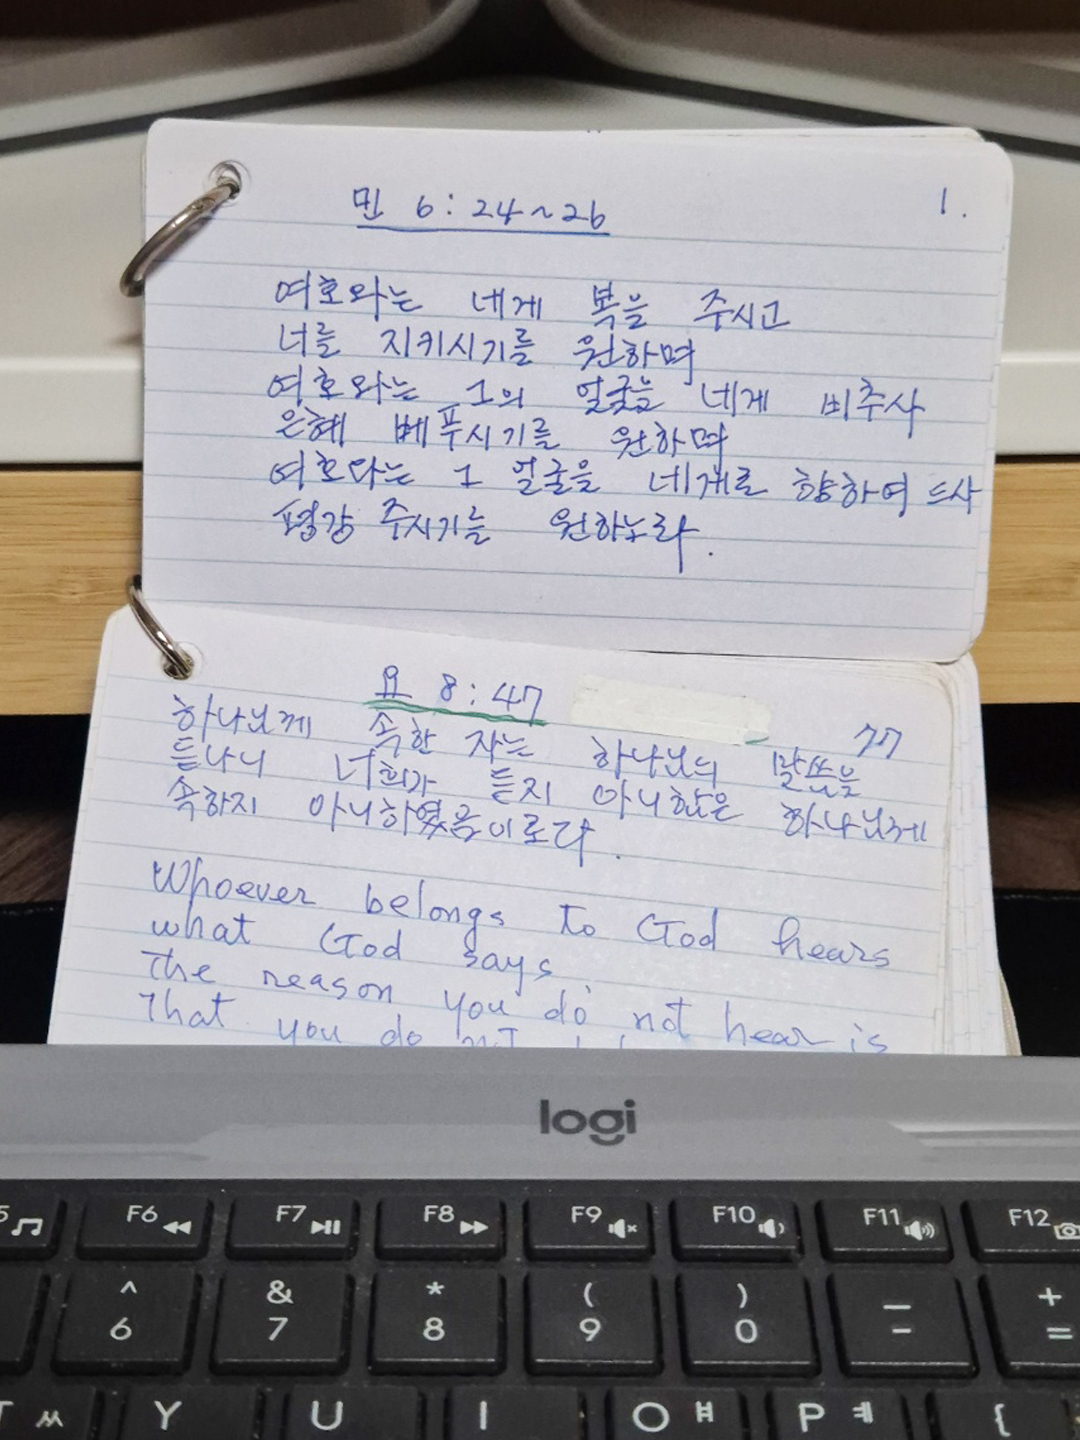 민 6:24~26
1.
여호와는 네게 복을 주시고
너를 지키시기를 원하며
여호와는 그의 얼굴을 네게 비추사
은혜 베푸시기를 원하며
여호와는 그 얼굴을 네게로 향하여 드사
평강 주시기를 원하노라.
요 8:47
77
하나님께 속한 자는 하나님의 말씀을
듣나니 너희가 듣지 아니함은 하나님께
속하지 아니하였음이로다.
Whoever belongs to God hears
what God says.
The reason you do not hear is
That you do not
logi
5 F6 F7 F8 F9 F10 F11 F12
^ & * ( ) — +
6 7 8 9 0 - =
T ㅆ Y U I O ㅐ P ㅔ {